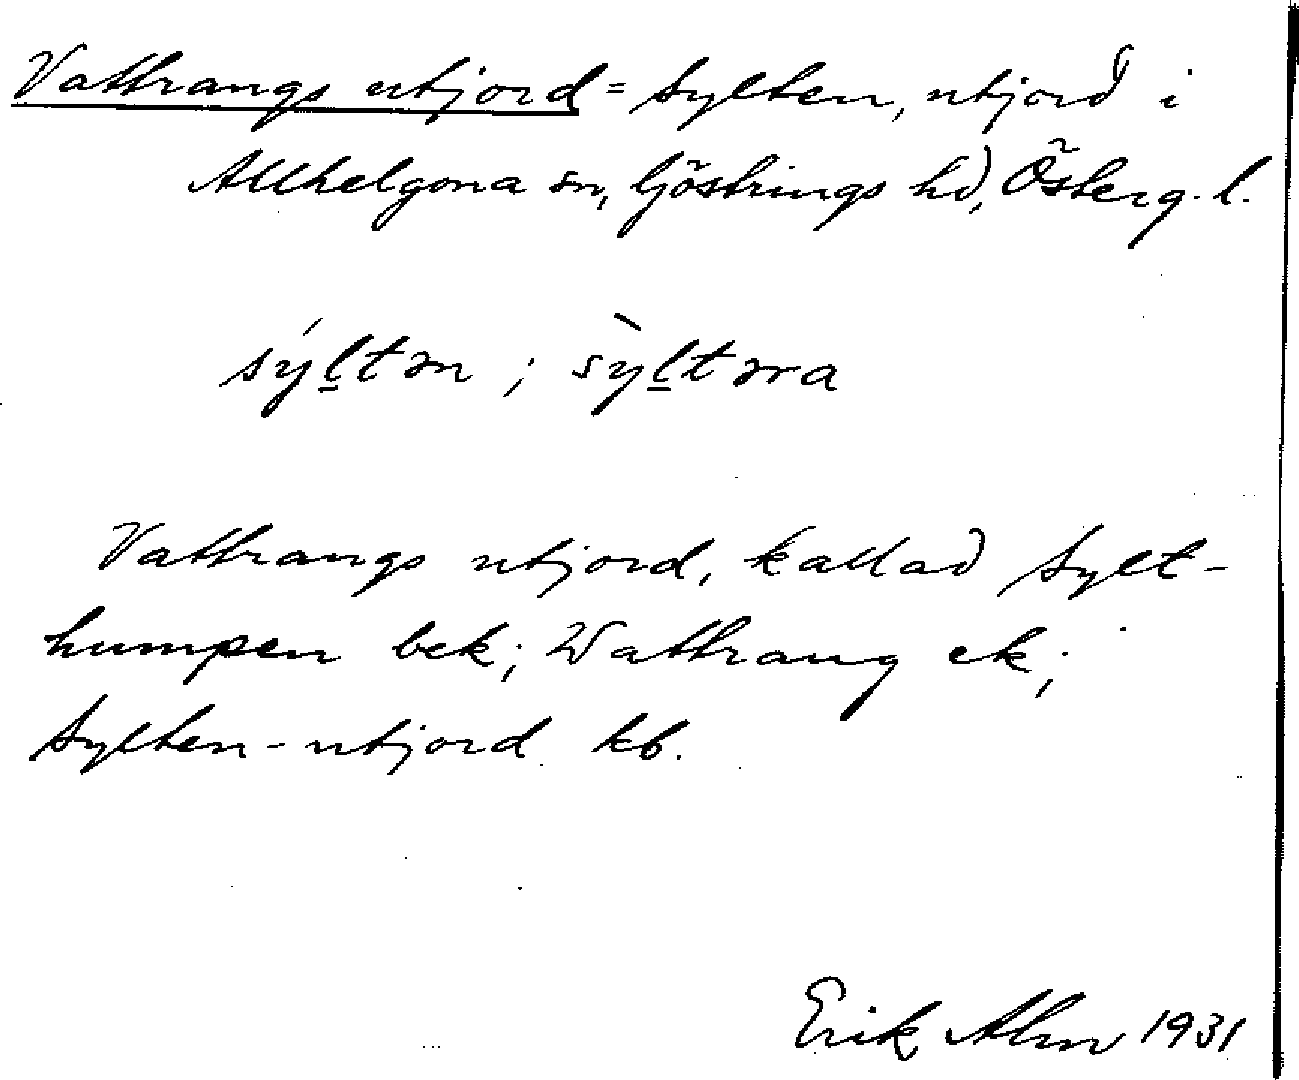 Vattrangs utjord = Sylten, utjord i
Allhelgona sn, Göstrings hd, Österg. l.
sýl̲tən ; sỳl̲təna
Vattrangs utjord, kallad Sylt-
humpen bek; Wattrang ek;
Sylten-utjord kb.
Erik Alm 1931